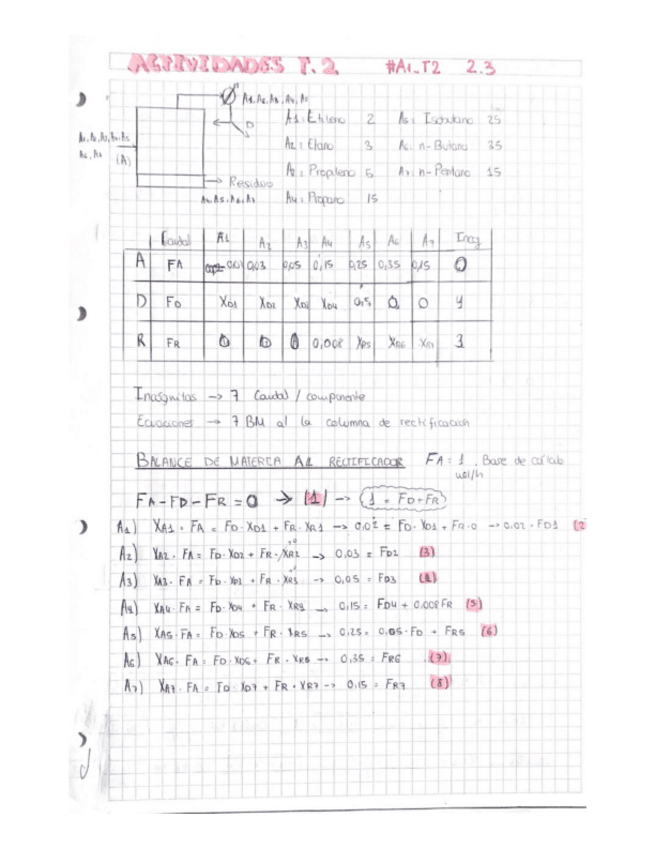 ACTIVIDADES T.2 #A1_T2 2.3
A1, A2, A3, A4, A5
A1: Etileno 2 A5: Isobutano 25
D
A2: Etano 3 A6: n-Butano 35
(A)
A3: Propileno 5 A7: n-Pentano 15
Residuo
A4, A5, A6, A7
A4: Propano 15
Caudal A1 A2 A3 A4 A5 A6 A7 Incog
A FA 0,03 0,05 0,15 0,25 0,35 0,15 0
D FD XD1 XD2 XD3 XD4 0 0 4
R FR 0 0 0 0,008 XR5 XR6 XR7 3
Incógnitas → 7 Caudal / componente
Ecuaciones → 7 BM al la columna de rectificación
BALANCE DE MATERIA AL RECTIFICADOR FA = 1 Base de cálculo
mol/h
FA - FD - FR = 0 → (1) → 1 = FD + FR
A1) XA1 · FA = FD · XD1 + FR · XR1 → 0,02 = FD · XD1 + FR · 0 → 0.02 = FD1 (2
A2) XA2 · FA = FD · XD2 + FR · XR2 → 0,03 = FD2 (3)
A3) XA3 · FA = FD · XD3 + FR · XR3 → 0,05 = FD3 (4)
A4) XA4 · FA = FD · XD4 + FR · XR4 → 0,15 = FD4 + 0,008 FR (5)
A5) XA5 · FA = FD · XD5 + FR · XR5 → 0,25 = 0,05 · FD + FR5 (6)
A6) XA6 · FA = FD · XD6 + FR · XR6 → 0,35 = FR6 (7)
A7) XA7 · FA = FD · XD7 + FR · XR7 → 0,15 = FR7 (8)